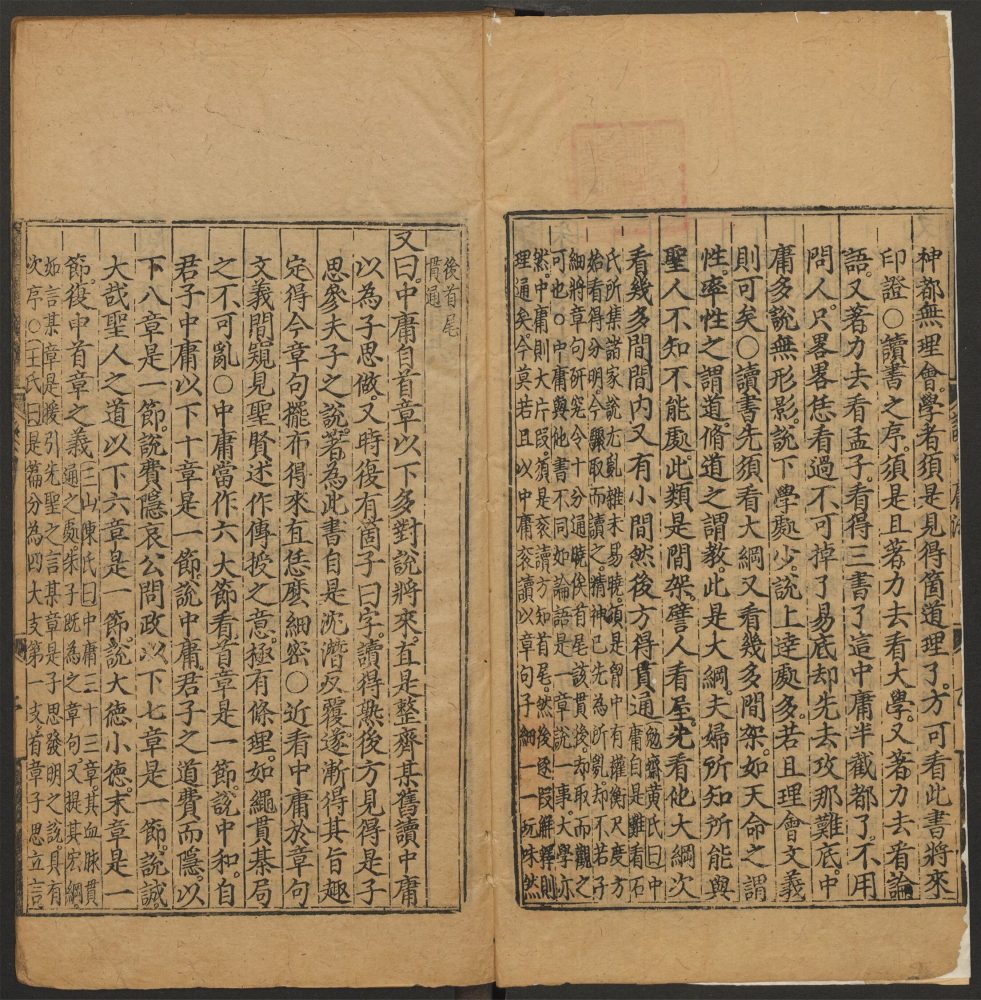 神都無理會。學者須是見得箇道理了。方可看此書將來
印證○讀書之序。須是且著力去看大學。又著力去看論
語。又著力去看孟子。看得三書了。這中庸半截都了。不用
問人。只畧畧恁看過。不可掉了易底却先去攻那難底。中
庸多說無形影。說下學處少。說上達處多。若且理會文義
則可矣。○讀書先須看大綱又看幾多間架。如天命之謂
性。率性之謂道。脩道之謂教。此是大綱。夫婦所知所能與
聖人不知不能處。此類是間架。譬人看屋。先看他大綱次
看幾多間間內又有小間然後方得貫通
勉齋黃氏曰中庸自是難看石
氏所集諸家說尤亂雜未易曉。須是胷中有權衡尺度方
始看得分明。今驟取而讀之。精神已先為所亂却不若子
細將章句研究令十分通曉俟首尾該貫後。却取而觀之
可也○中庸與他書不同。如論語是一章說一事。大學亦
然。中庸則大片段。須是衮讀方知首尾。然後逐段解釋則
理通矣。今莫若且以中庸衮讀以章句子細一一玩味然
後首尾
貫通
又曰。中庸自首章以下多對說將來。直是整齊某舊讀中庸
以為子思做。又時復有箇子曰字。讀得熟後方見得是子
思參夫子之說。著為此書自是沈潛反覆。遂漸得其旨趣
定得今章句擺布得來直恁麽細密○近看中庸於章句
文義間窺見聖賢述作傳授之意。極有條理。如繩貫棊局
之不可亂○中庸當作六大節看首章是一節。說中和。自
君子中庸以下十章是一節。說中庸。君子之道費而隱。以
下八章是一節。說費隱哀公問政以下七章是一節。說誠。
大哉聖人之道以下六章是一節。說大德。小德。末章是一
節。復申首章之義
三山陳氏曰中庸三十三章。其血脉貫
通之處。朱子既為之章句。又提其宏綱。
如言某章是援引先聖之言某章是子思發明之說具有
次序○王氏曰是篇分為四大支第一支首章子思立言